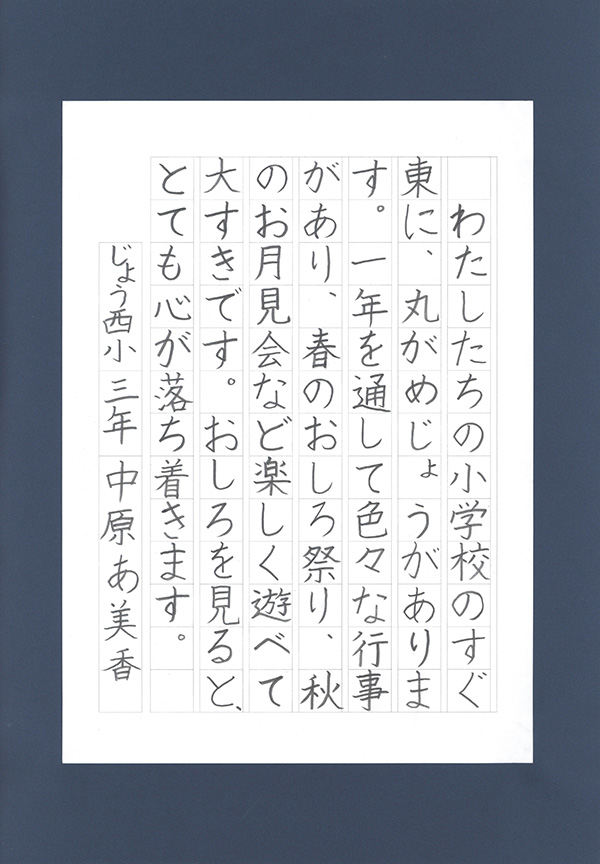 わたしたちの小学校のすぐ
東に、丸がめじょうがありま
す。一年を通して色々な行事
があり、春のおしろ祭り、秋
のお月見会など楽しく遊べて
大すきです。おしろを見ると、
とても心が落ち着きます。
じょう西小 三年 中原あ美香